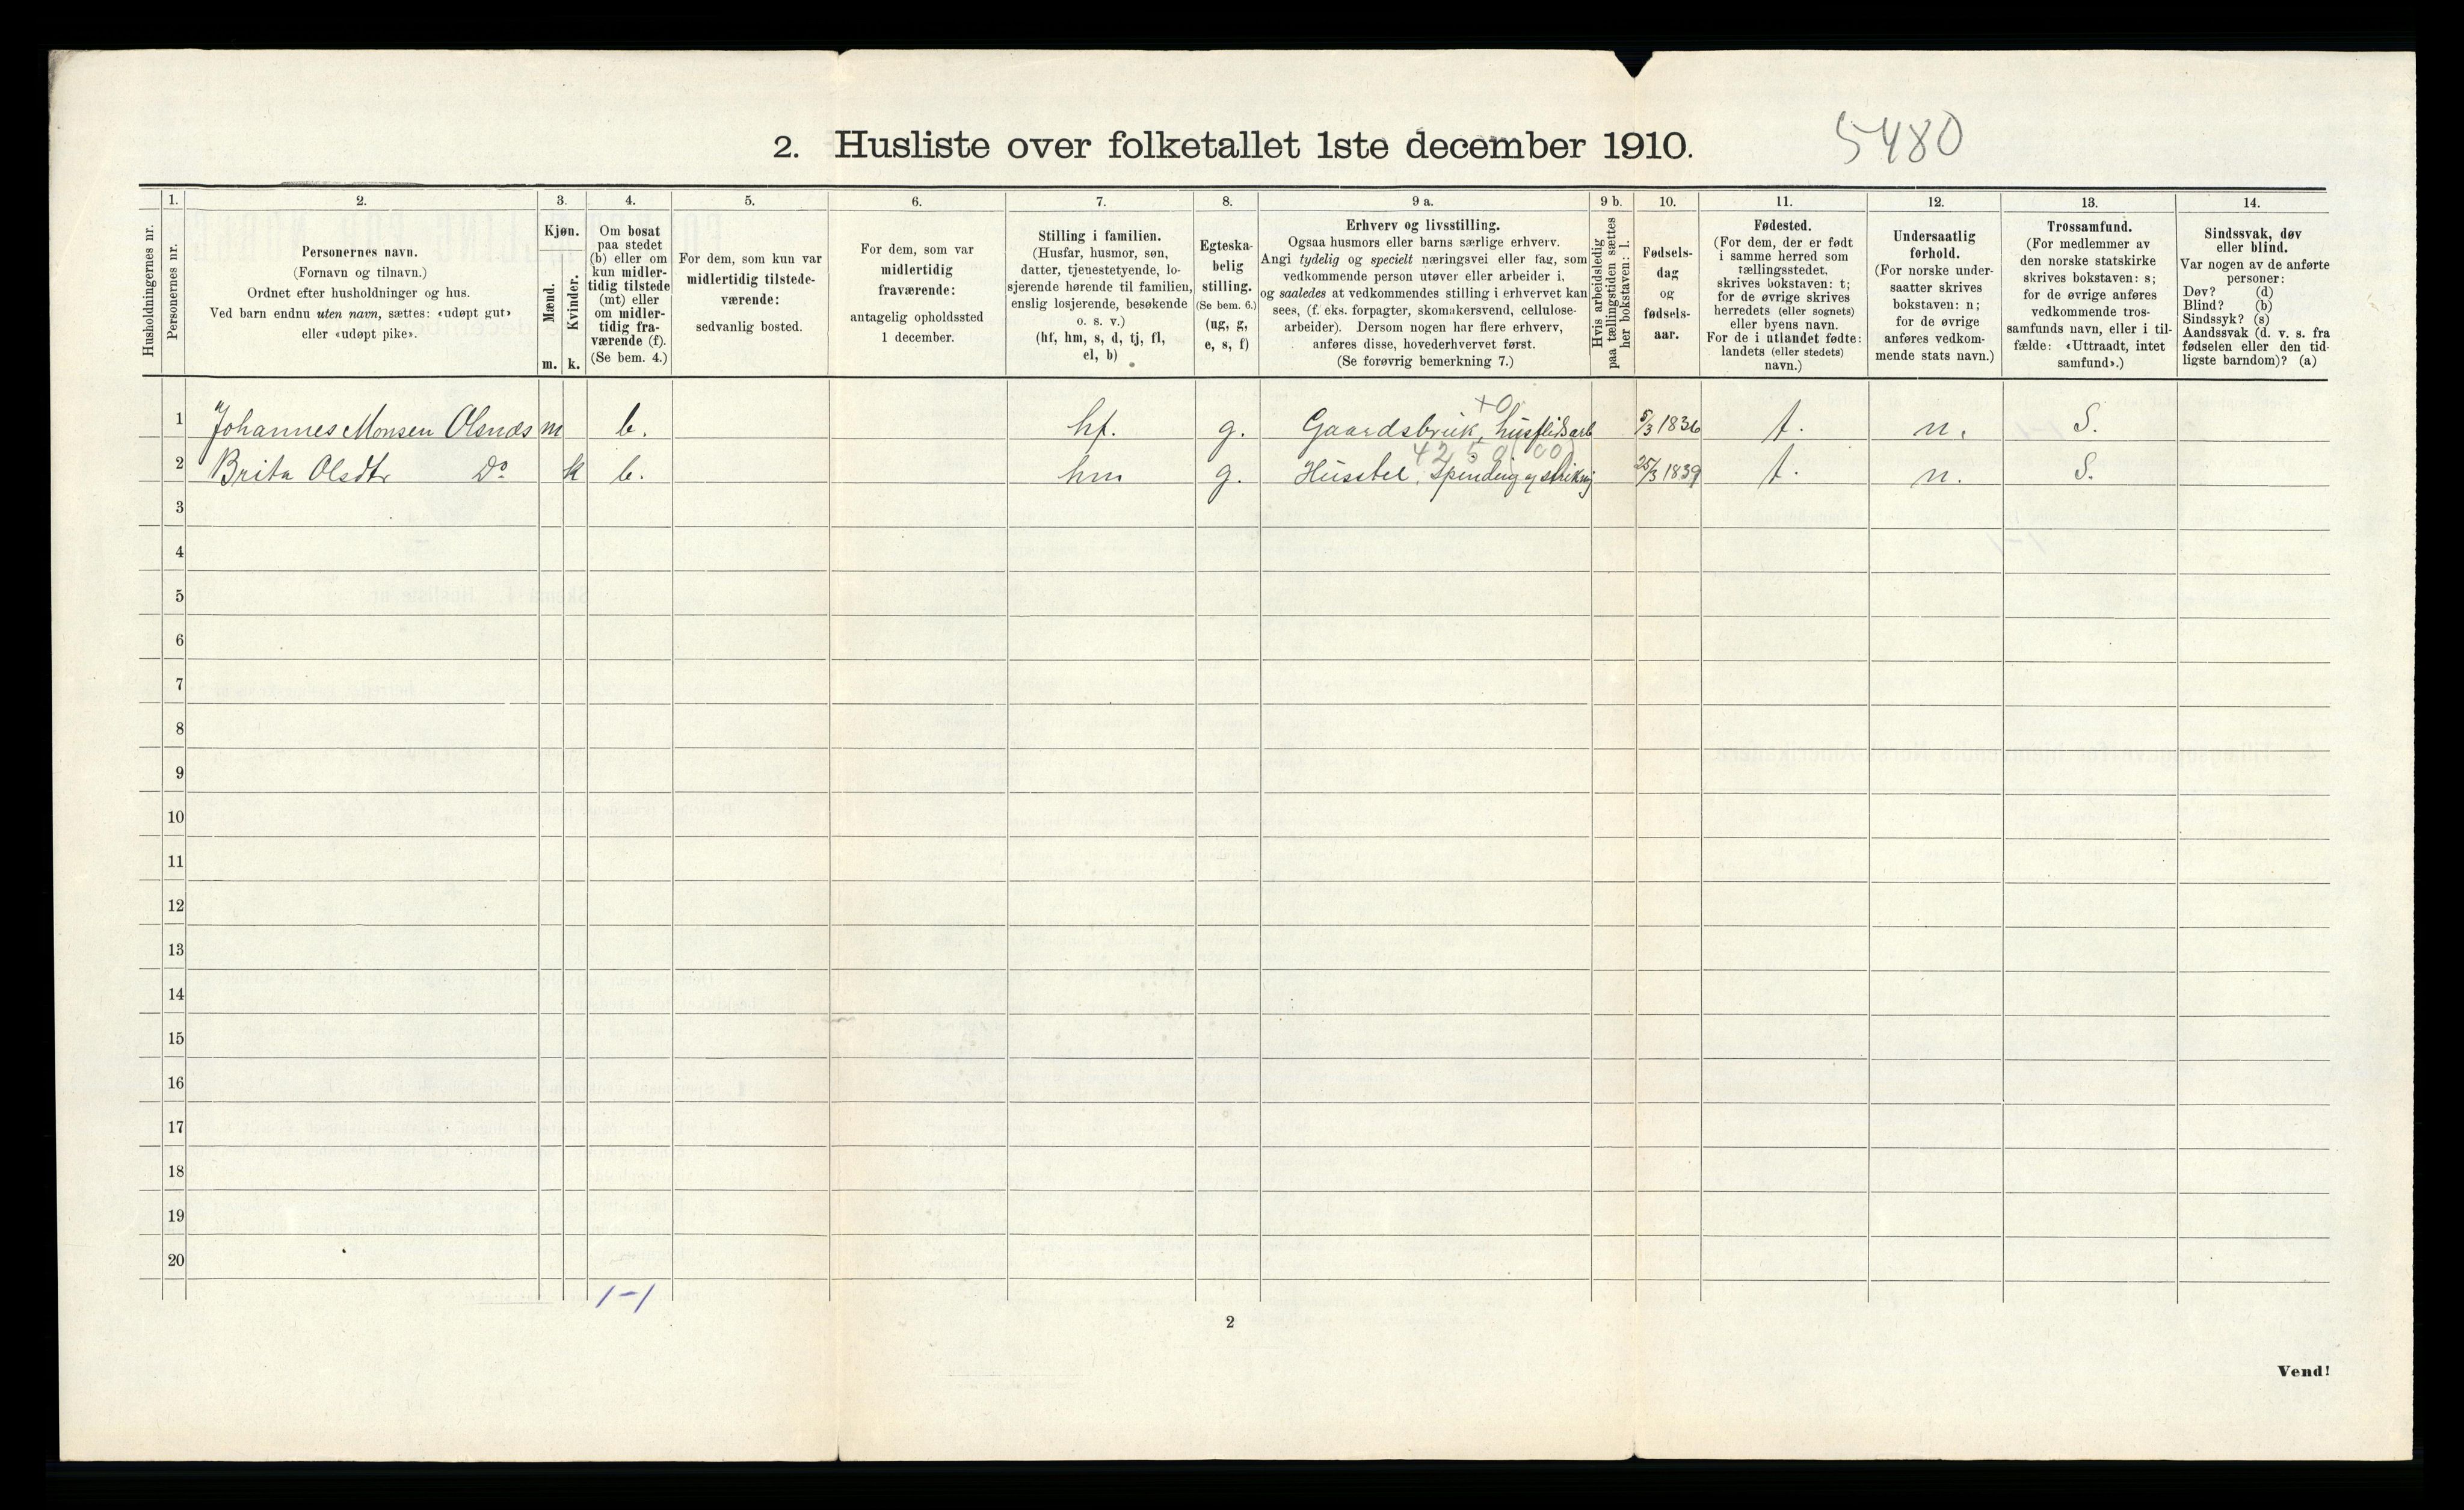 2. Husliste over folketallet 1ste december 1910.
5480
Husholdningernes nr.
1.
Personernes nr.
2.
Personernes navn.
(Fornavn og tilnavn.)
Ordnet efter husholdninger og hus.
Ved barn endnu uten navn, sættes: «udøpt gut»
eller «udøpt pike».
3.
Kjøn.
Mænd.
Kvinder.
m. k.
4.
Om bosat
paa stedet
(b) eller om
kun midler-
tidig tilstede
(mt) eller
om midler-
tidig fra-
værende (f).
(Se bem. 4.)
5.
For dem, som kun var
midlertidig tilstede-
værende:
sedvanlig bosted.
6.
For dem, som var
midlertidig
fraværende:
antagelig opholdssted
1 december.
7.
Stilling i familien.
(Husfar, husmor, søn,
datter, tjenestetyende, lo-
sjerende hørende til familien,
enslig losjerende, besøkende
o. s. v.)
(hf, hm, s, d, tj, fl,
el, b)
8.
Egteska-
belig
stilling.
(Se bem. 6.)
(ug, g,
e, s, f)
9 a.
Erhverv og livsstilling.
Ogsaa husmors eller barns særlige erhverv.
Angi tydelig og specielt næringsvei eller fag, som
vedkommende person utøver eller arbeider i,
og saaledes at vedkommendes stilling i erhvervet kan
sees, (f. eks. forpagter, skomakersvend, cellulose-
arbeider). Dersom nogen har flere erhverv,
anføres disse, hovederhvervet først.
(Se forøvrig bemerkning 7.)
9 b.
Hvis arbeidsledig
paa tællingstiden sættes
her bokstaven: l.
10.
Fødsels-
dag
og
fødsels-
aar.
11.
Fødested.
(For dem, der er født
i samme herred som
tællingsstedet,
skrives bokstaven: t;
for de øvrige skrives
herredets (eller sognets)
eller byens navn.
For de i utlandet fødte:
landets (eller stedets)
navn.)
12.
Undersaatlig
forhold.
(For norske under-
saatter skrives
bokstaven: n;
for de øvrige
anføres vedkom-
mende stats navn.)
13.
Trossamfund.
(For medlemmer av
den norske statskirke
skrives bokstaven: s;
for de øvrige anføres
vedkommende tros-
samfunds navn, eller i til-
fælde: «Uttraadt, intet
samfund».)
14.
Sindssvak, døv
eller blind.
Var nogen av de anførte
personer:
Døv? (d)
Blind? (b)
Sindssyk? (s)
Aandssvak (d. v. s. fra
fødselen eller den tid-
ligste barndom)? (a)
+0
1 Johannes Monsen Olsnes m b. hf. g. Gaardsbruk, husflidsarb 5/3 1836 t. n. S.
2 Brita Olsdtr Do k b. hm g. Husstel, Spinding og strikning 25/3 1839 t. n. S.
3
4
5
6
7
8
9
10
11
12
13
14
15
16
17
18
19
20
1-1
2
Vend!